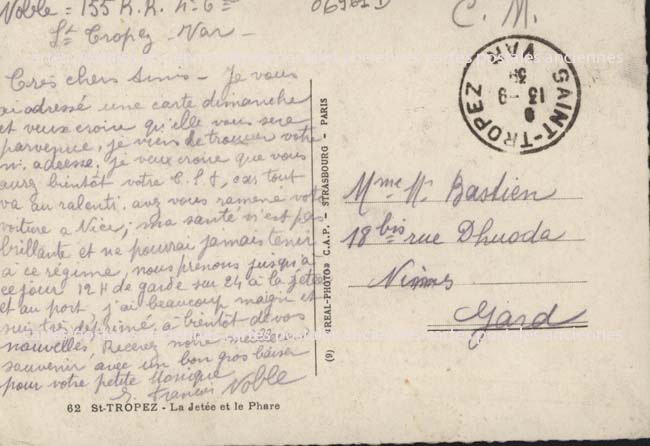 Noble = 155 R.R. N° 6
06961 D
C. M.
St Tropez - Var -
Très chers Amis - Je vous
ai adressé une carte dimanche
et veux croire qu'elle vous sera
parvenue, je viens de trouver votre
n. adresse. je veux croire que vous
aurez bientôt votre car tout
va au ralenti. avez vous ramené votre
voiture a Nice; ma santé n'est pas
brillante et ne pourrai jamais tenir
à ce régime, nous prenons jusqu'à
ce jour 12 H de garde sur 24 à la jetée
et au port, j'ai beaucoup maigri et
suis très déprimé, à bientôt de vos
nouvelles, Recevez notre meilleur
souvenir avec un bon gros baiser
pour votre petite Monique
François Noble
62 St-TROPEZ - La Jetée et le Phare
(9) «REAL-PHOTO» C.A.P. - STRASBOURG - PARIS
SAINT-TROPEZ
VAR
13 - 9
39
Mme Mr Bastien
18 bis rue Dhuoda
Nimes
Gard